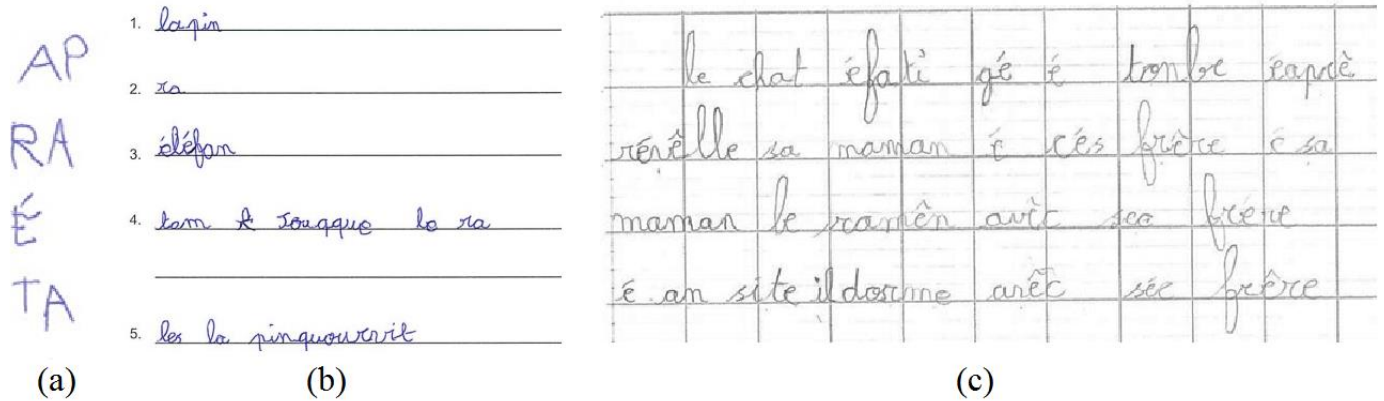 AP
RA
É
TA
(a)
1. lapin
2. ra
3. éléfan
4. tom jouqque le ra
5. les la pinquourrit
(b)
le chat éfati gé é tonbe éaprê
révêlle sa maman é cés frêre é sa
maman le ramên avêc ses frére
é an site il dorme avêc sée frêre
(c)